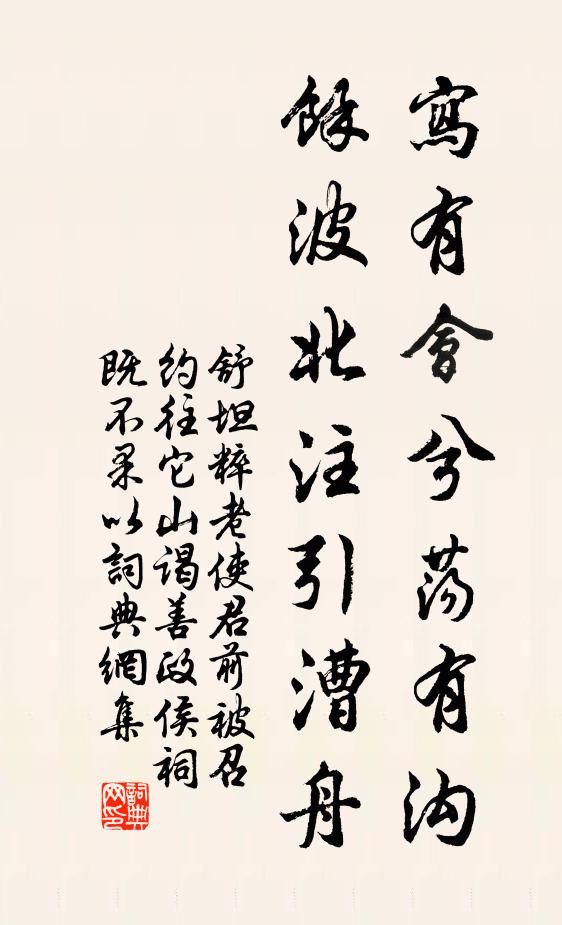 寫有會兮蕩有溝
餘波北注引漕舟
舒坦粹老使君前被召
約往它山謁善政侯祠
既不果以詞典網集
詞典网印